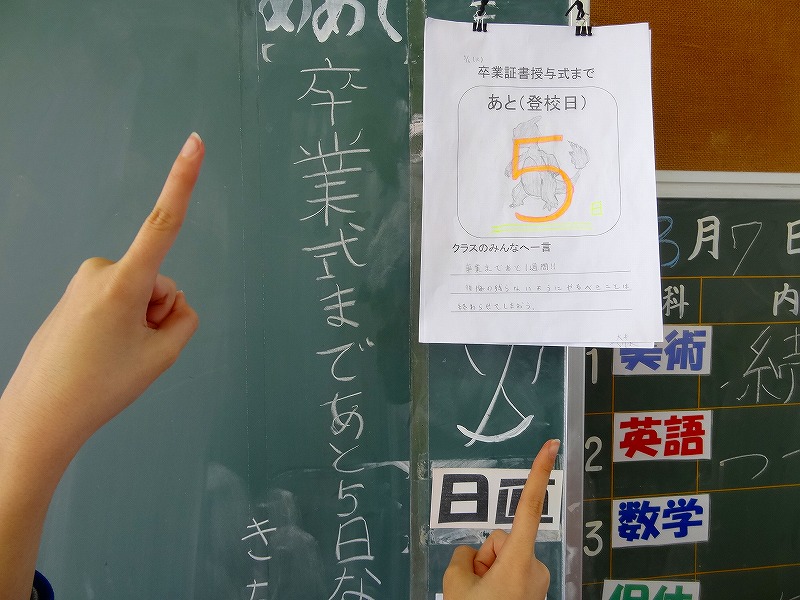 めあて
卒業式まであと5日な
き
卒業証書授与式まで
あと(登校日)
5
日
クラスのみんなへ一言
卒業まであと1週間!!
後悔の残らないようにやるべきことは
終わらせてしまおう。
日直
3月7日
科
内
1
美術
続
2
英語
3
数学
保体